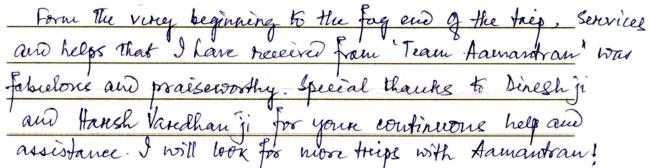 Form the very beginning to the fag end of the trip, Services
and helps that I have received from 'Team Aamantran' was
fabulous and praiseworthy. Special thanks to Dinesh ji
and Harsh Vardhan ji for your continuous help and
assistance. I will look for more trips with Aamantran!